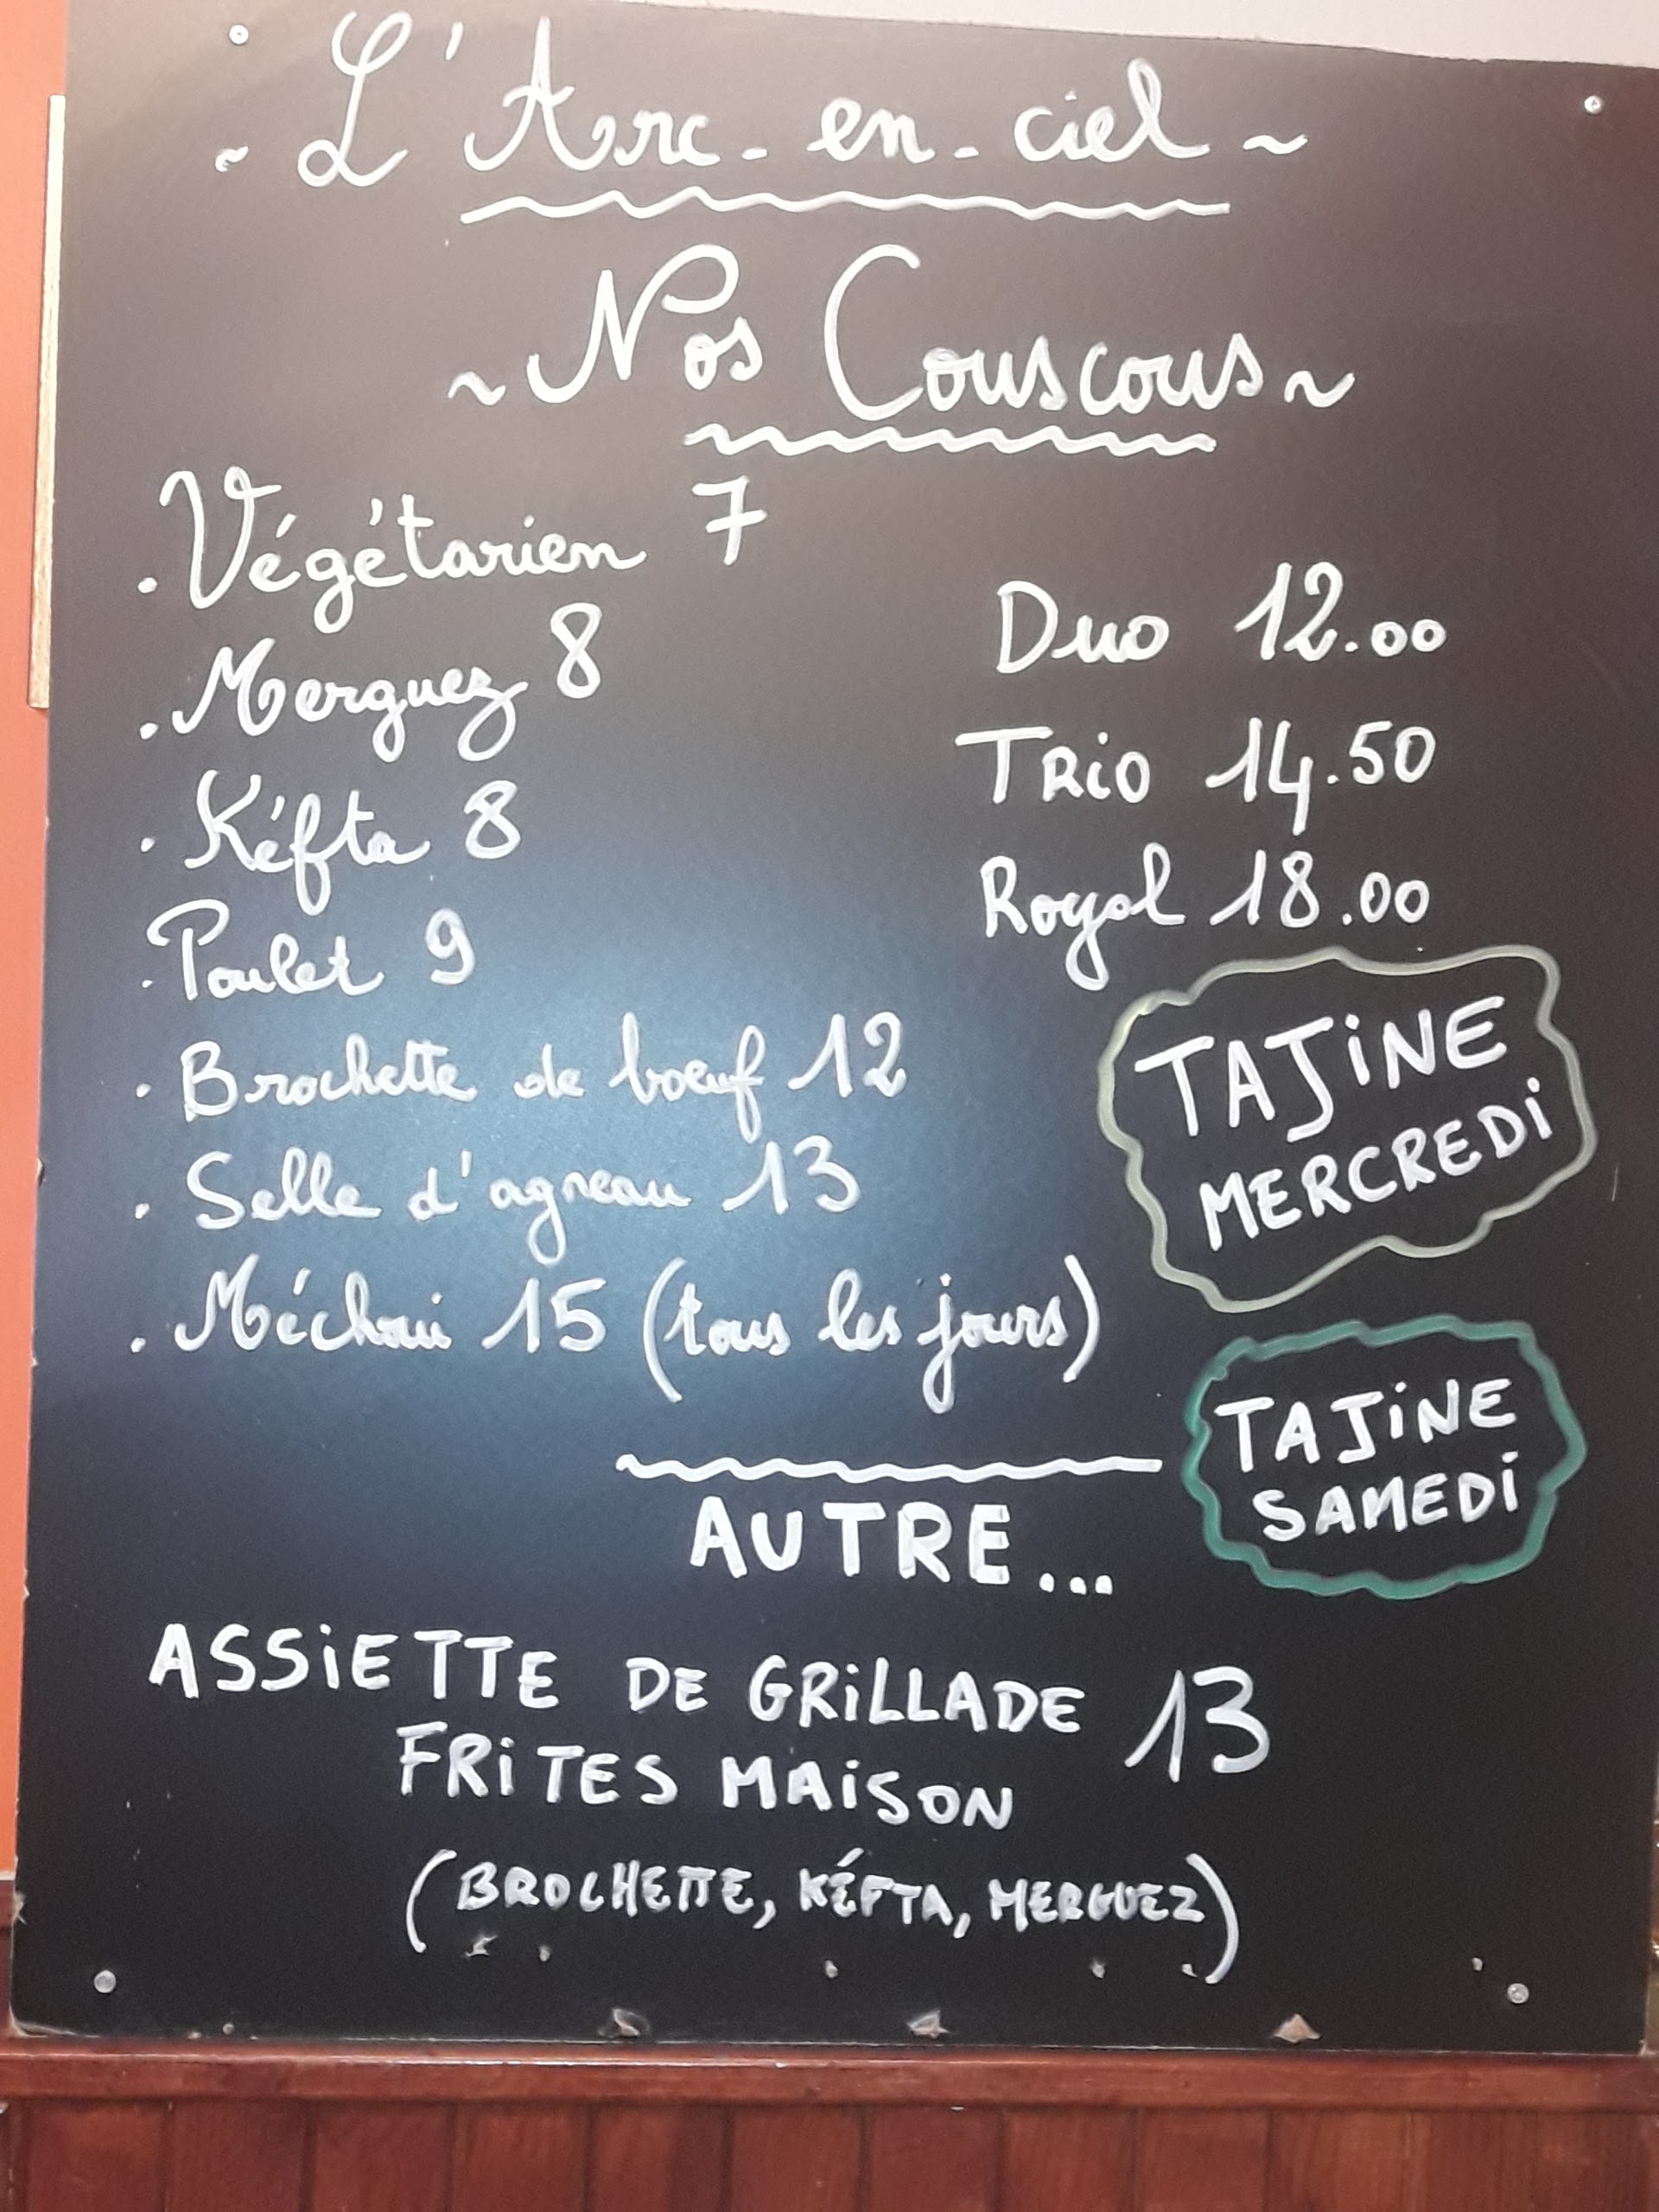 ~ L'Arc-en-ciel ~
~ Nos Couscous ~
. Végétarien 7
. Merguez 8
. Kéfta 8
. Poulet 9
. Brochette de bœuf 12
. Selle d'agneau 13
. Méchoui 15 (tous les jours)
Duo 12.00
TRiO 14.50
Royal 18.00
TAJiNE
MERCREDi
TAJiNE
SAMEDi
AUTRE...
ASSiETTE DE GRiLLADE 13
FRiTES MAiSON
(BROCHETTE, KÉFTA, MERGUEZ)